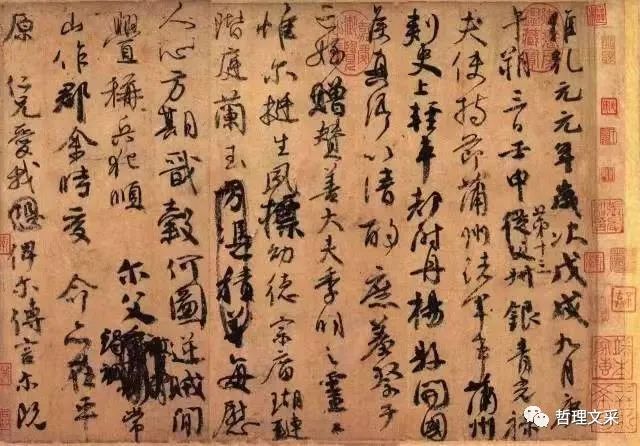 維乾元元年歲次戊戌九月庚
午朔三日壬申第十三從父銀青光祿
夫使持節蒲州諸軍事蒲州
刺史上輕車都尉丹楊縣開國
侯真卿以清酌庶羞祭于
亡姪贈贊善大夫季明之靈曰
惟爾挺生夙標幼德宗廟瑚璉
階庭蘭玉方憑積善每慰
人心方期戩穀何圖逆賊間
釁稱兵犯順爾父竭誠常
山作郡余時受命亦在平
原仁兄愛我俾爾傳言爾既
哲理文采